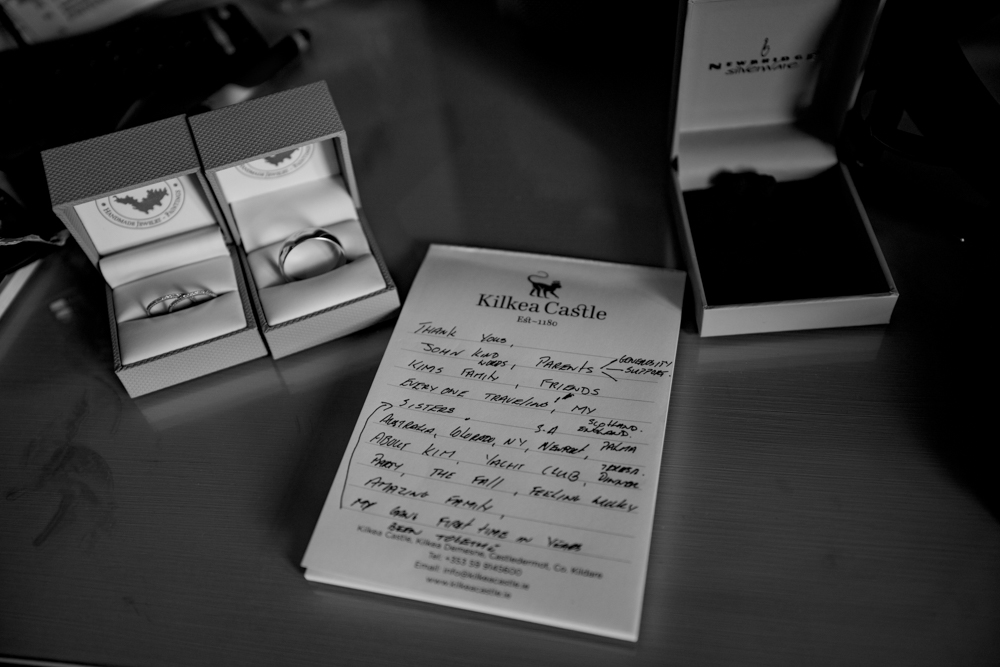 HANDMADE JEWELRY - PAINTINGS
NEWBRIDGE
silverware
Kilkea Castle
Est-1180
THANK YOUS,
JOHN KIND WORDS, PARENTS GENEROSITY SUPPORT.
KIMS FAMILY, FRIENDS
EVERYONE TRAVELING, MY
SISTERS S.A SCOTLAND. ENGLAND.
AUSTRALIA, COLORADO, NY, NEWPORT, PALMA
ABOUT KIM, YACHT CLUB, DINNER
PARTY, THE FALL, FEELING LUCKY
AMAZING FAMILY,
MY FIRST TIME IN YEARS
BEEN TOGETHER
Kilkea Castle, Kilkea Demesne, Castledermot, Co. Kildare
Tel: +353 59 9145600
Email: info@kilkeacastle.ie
www.kilkeacastle.ie